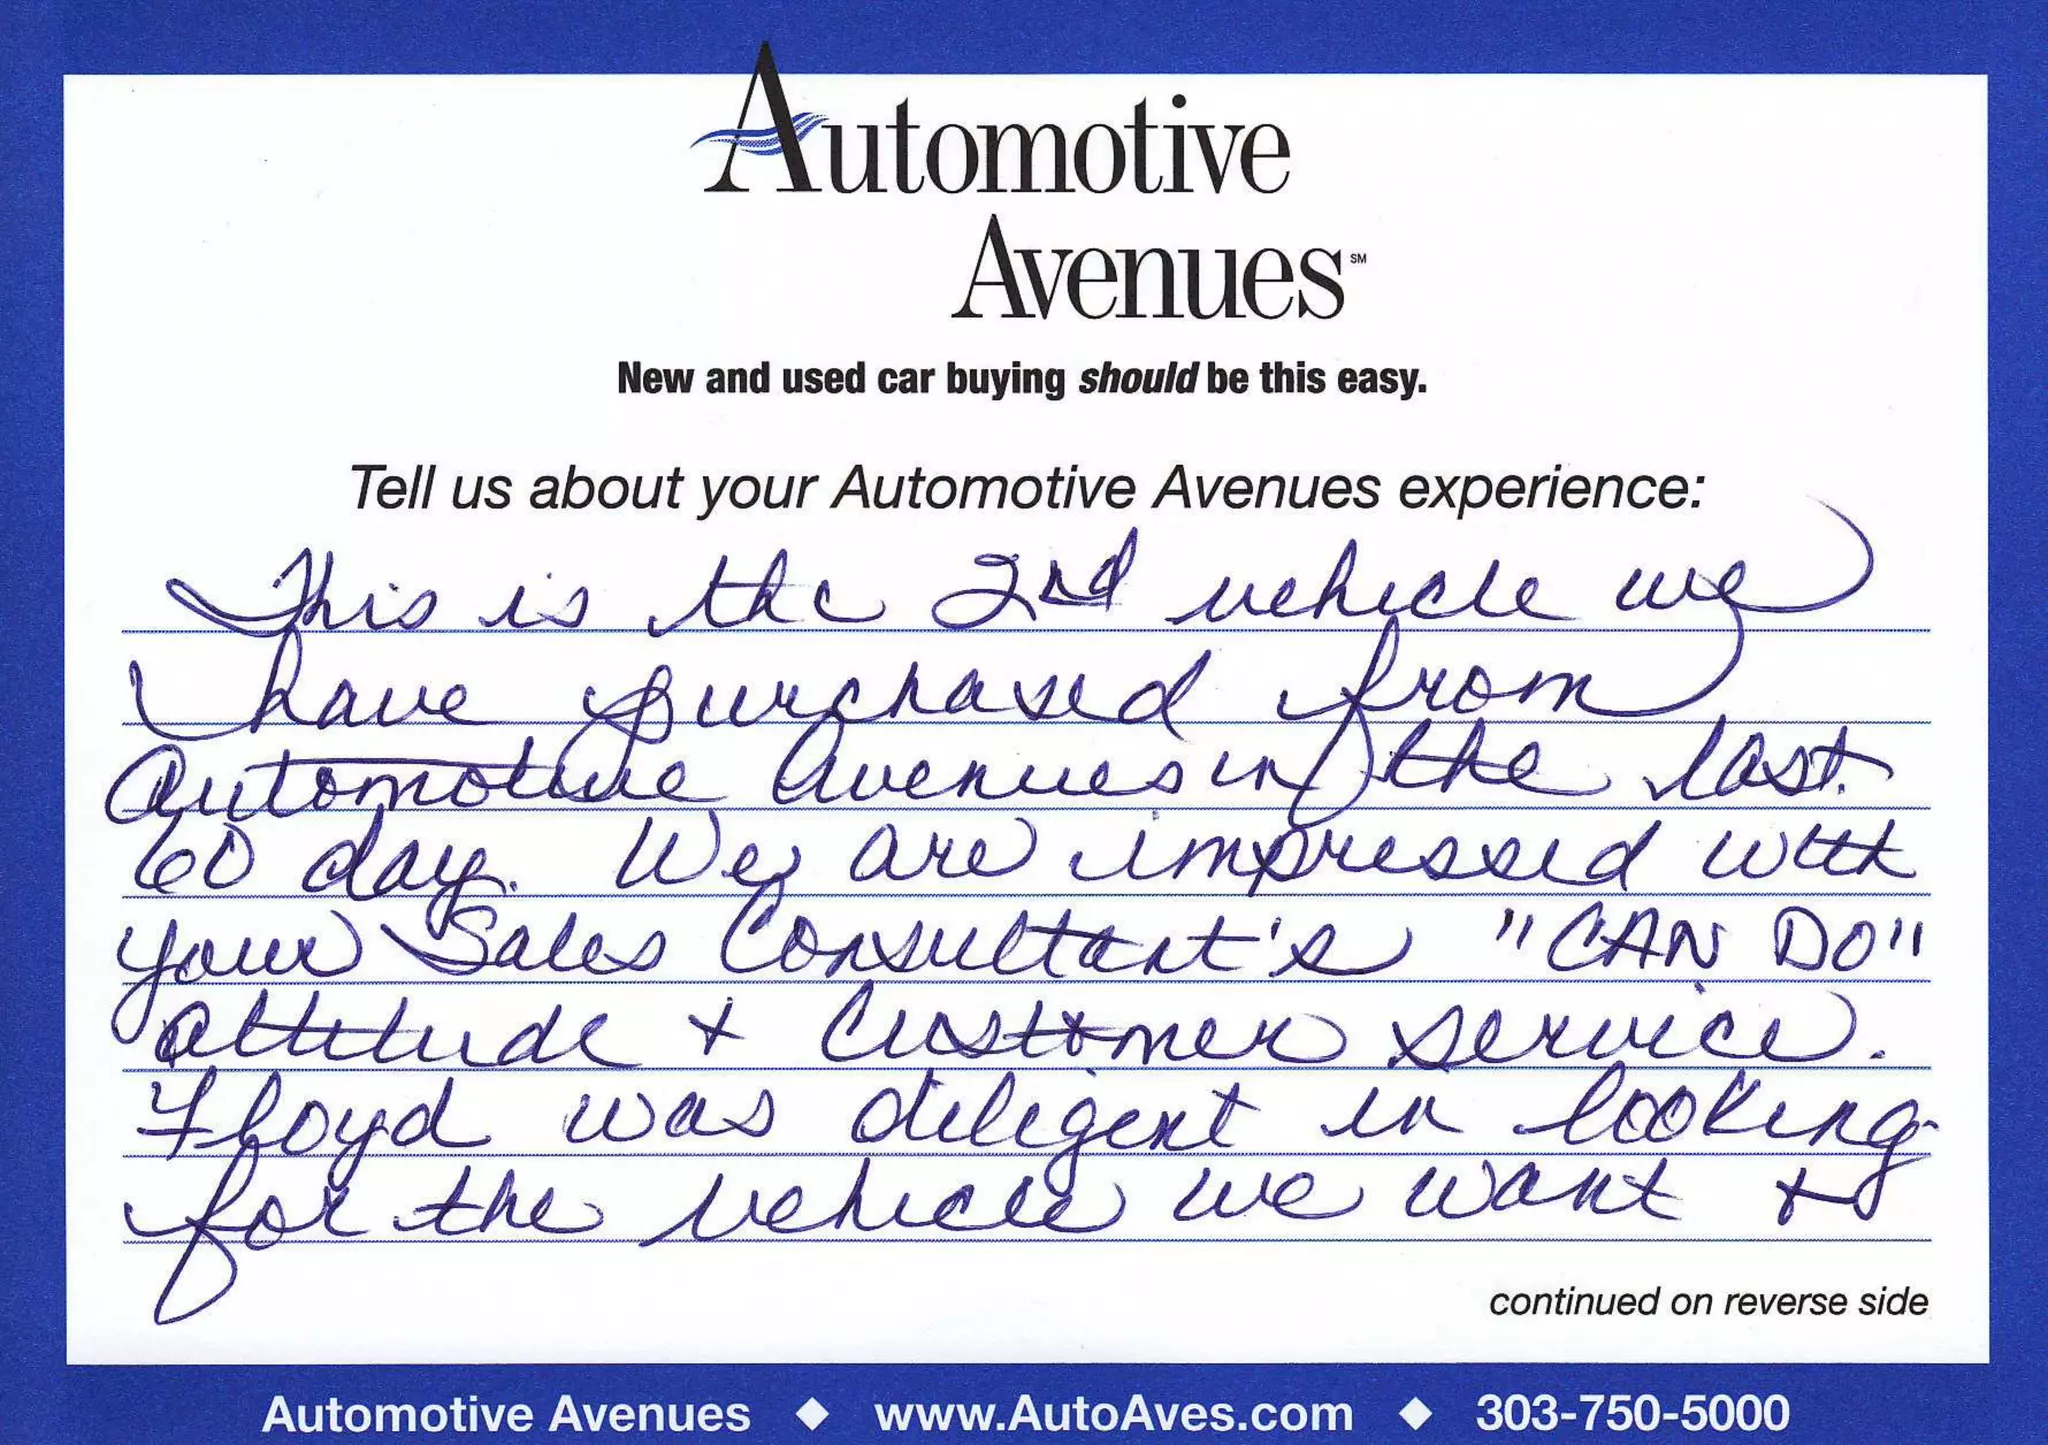 Automotive
Avenues℠
New and used car buying should be this easy.
Tell us about your Automotive Avenues experience:
This is the 2nd vehicle we
have purchased from
Automotive Avenues in the last
60 day. We are impressed with
your Sales Consultant's "CAN DO"
attitude + Customer service.
Floyd was diligent in looking
for the vehicle we want +
continued on reverse side
Automotive Avenues ◆ www.AutoAves.com ◆ 303-750-5000